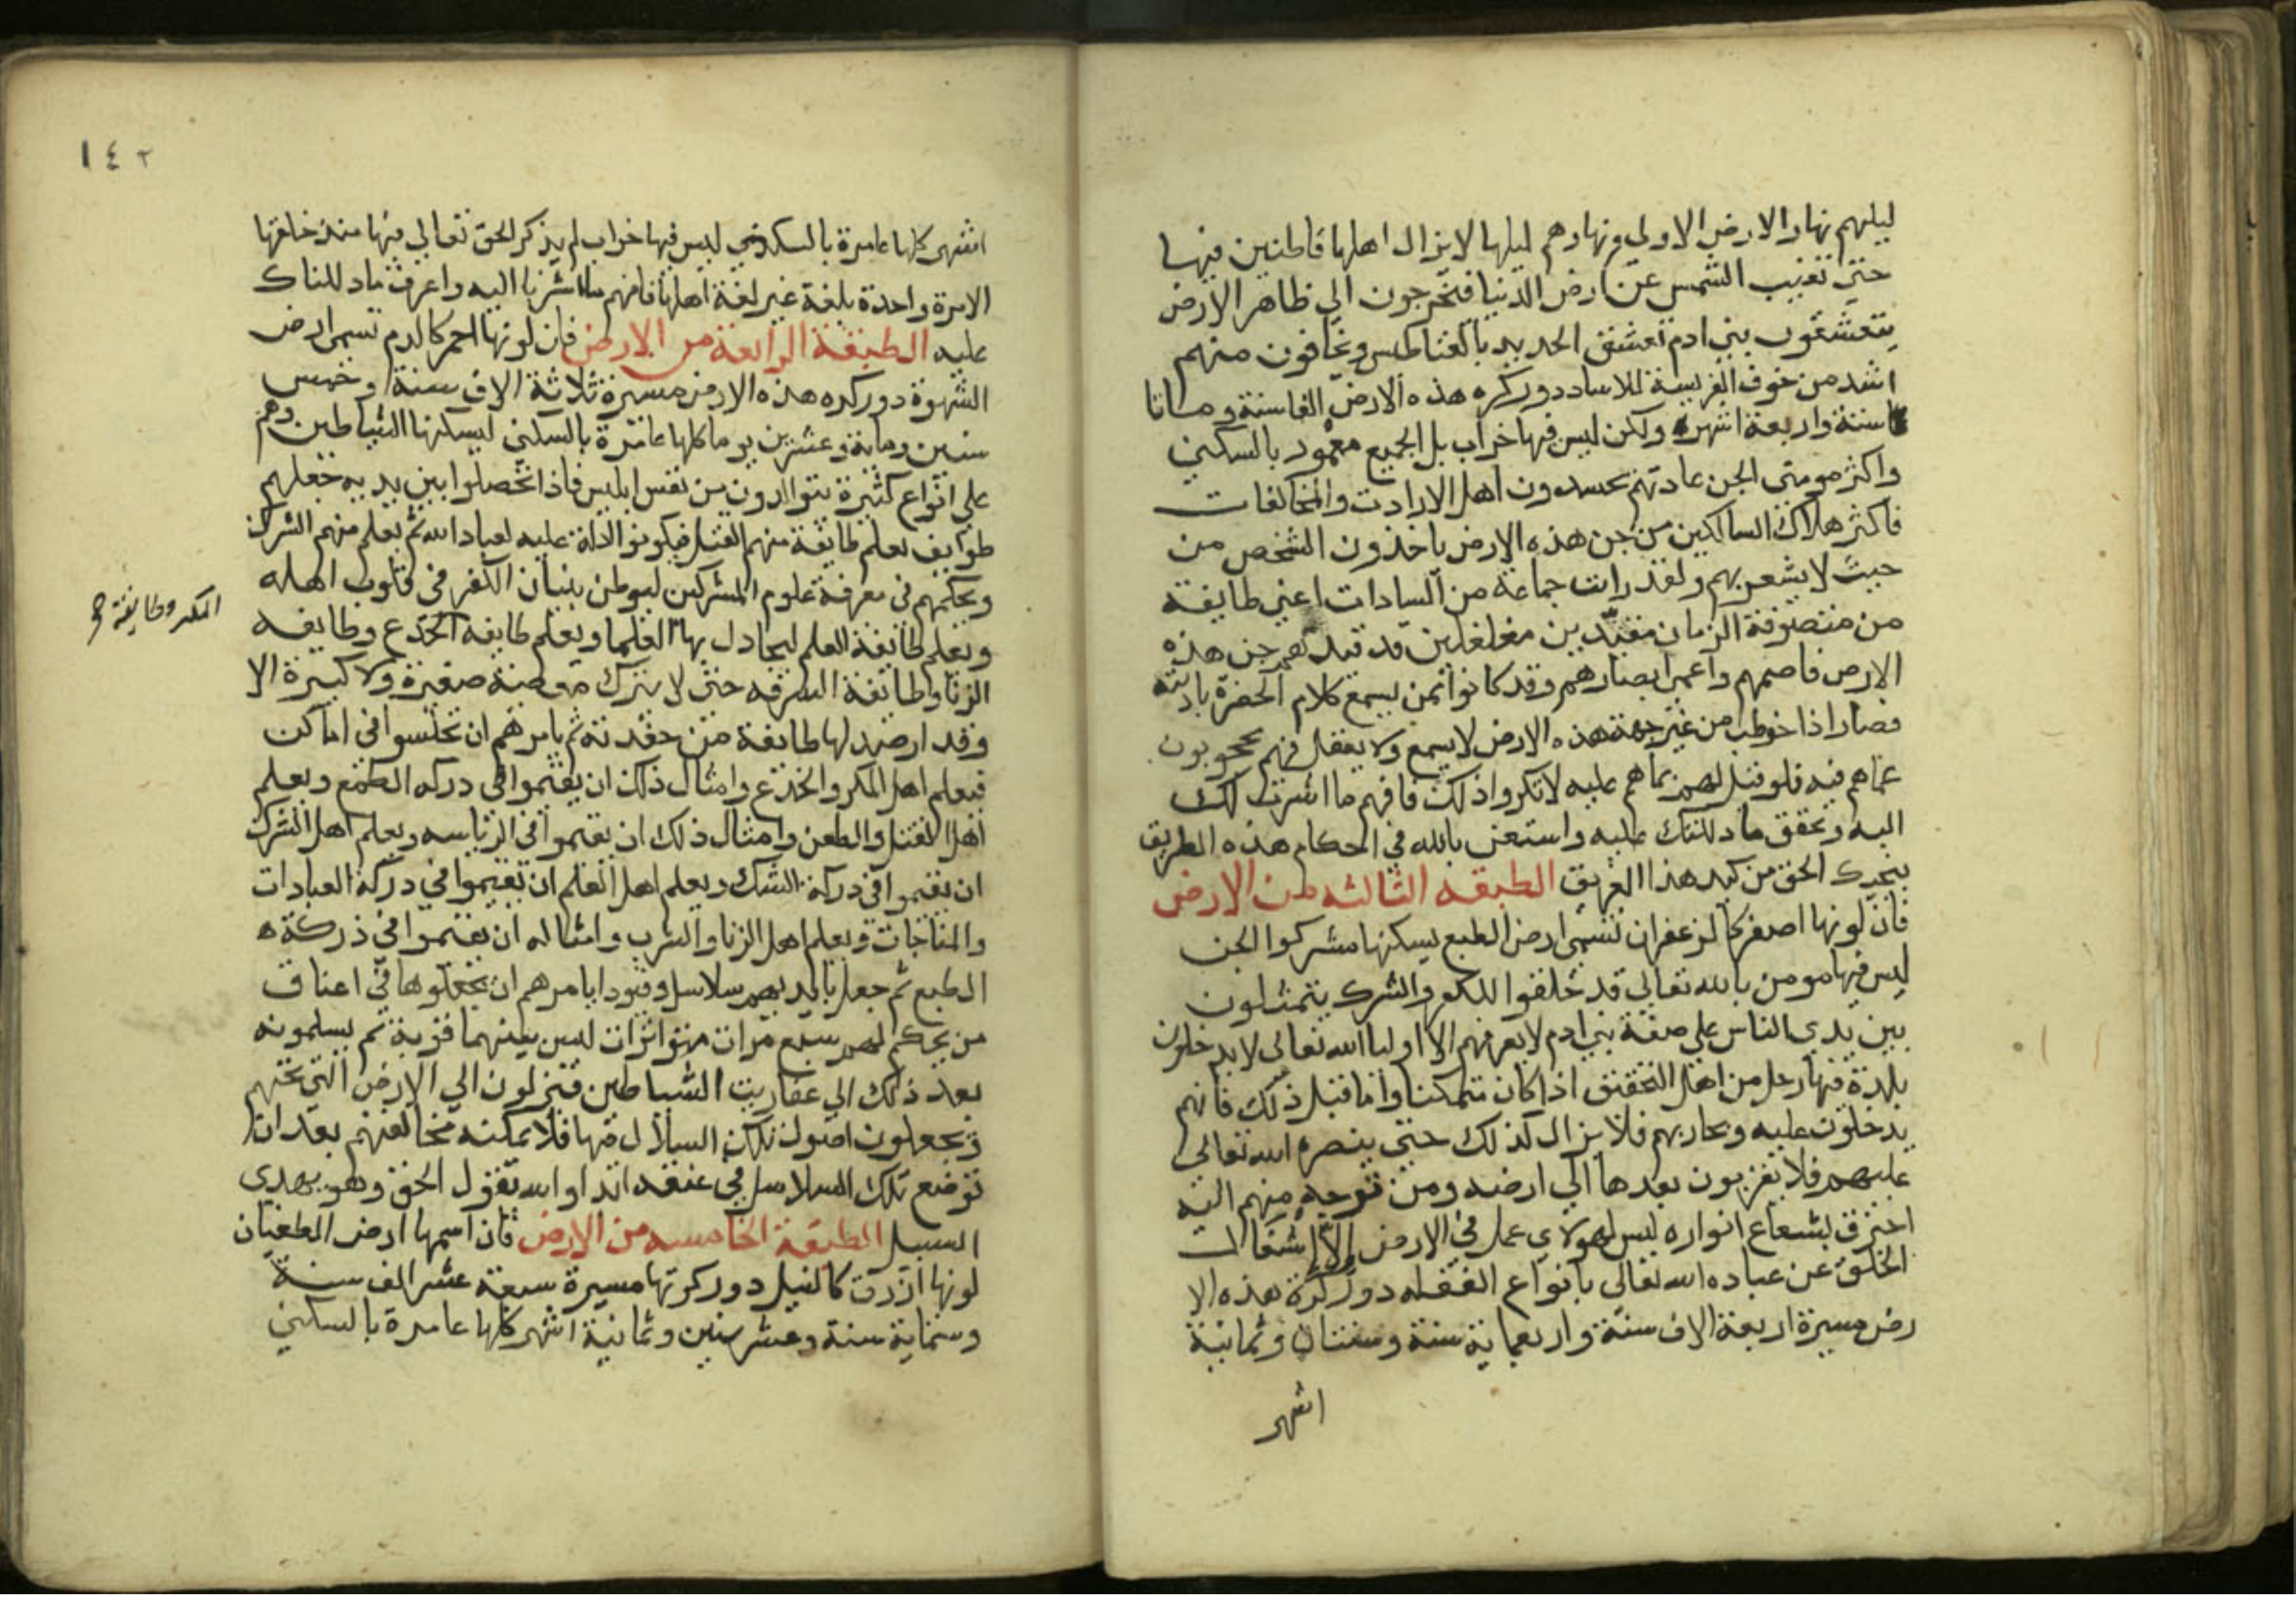 ليلهم نهار الارض الاولي ونهارهم ليلها لا يزال اهلها قاطنين فيها
حتي تغيب الشمس عن ارض الدنيا فيخرجون الي ظاهر الارض
يتعشقون ببني ادم تعشق الحديد بالمغناطيس ويخافون منهم
اشد من خوف الفريسة للاساد دور كره هذه الارض الفا سنة ومـاتا
سنة واربعة اشهره ولكن ليس فيها خراب بل الجميع معمور بالسكني
واكثر مومني الجن عادتهم يحسدون اهل الارادت والمخالفات
فاكثر هلاك السالكين من جن هذه الارض ياخذون الشخص من
حيث لا يشعر بهم ولقد رايت جماعة من السادات اعني طايفة
من متصوفة الزمان مقيدين مغلغلين قد قيدتهم جن هذه
الارض فاصمهم واعمي ابصارهم وقد كانوا ممن يسمع كلام الحضرة باذنه
فصار اذا خوطب من غير جهة هذه الارض لا يسمع ولا يعقل فهم محجوبون
عما هم فيه فلو قيل لهم بما هم عليه لانكروا ذلك فافهم ما اشرت لك
اليه وتحقق ما دللتك عليه واستعن بالله في احكام هذه الطريق
ينجيك الحق من كيد هذا الفريق الطبقه الثالثه من الارض
فان لونها اصفر كالزعفران تسمي ارض الطبع يسكنها مشركوا الجن
ليس فيها مومن بالله تعالي قد خلقوا للكفر والشرك يتمثلون
بين يدي الناس علي صفة بني ادم لا يعرفهم الا اوليا الله تعالي لا يدخلون
بلدة فيها رجل من اهل التحقيق اذا كان متمكنا واما قبل ذلك فانهم
يدخلون عليه ويحاربهم فلا يزال كذلك حتي ينصره الله تعالي
عليهم فلا يقربون بعدها الي ارضه ومن توجه منهم اليه
احترق بشعاع انواره ليس لهولاي عمل في الارض الا اشغال
الخلق عن عباده الله تعالي بانواع الغفله دور كرة هذه الا
رض مسيرة اربعة الاف سنة واربعماية سنة وسنتان وثمانية
اشهر
١٤٢
اشهر كلها عامرة بالسكني ليس فيها خراب لم يذكر الحق تعالي فيها منذ خلقها
الا مرة واحدة بلغة غير لغة اهلها فافهم ما اشرنا اليه واعرف ما دللناك
عليه الطبقة الرابعة من الارض فان لونها احمر كالدم تسمي ارض
الشهوة دور كره هذه الارض مسيرة ثلاثة الاف سنة وخمس
سنين وماية وعشرين يوما كلها عامرة بالسكني يسكنها الشياطين وهم
علي انواع كثيرة يتوالدون من نفس ابليس فاذا تحصلوا بين يديه جعلهم
طوايف يعلم طايفة منهم القتل فيكونو ادلة عليه لعباد الله ثم يعلم منهم الشرك
ويحكمهم في معرفة علوم المشركين ليوطن بنيان الكفر في قلوب اهله
ويعلم طايفة العلم ليجادل بها العلما ويعلم طايفه الخدع وطايفه
المكر وطايفة
الزنا وطايفة السرقه حتي لا يترك معصية صغيرة ولا كبيرة الا
وقد ارصد لها طايفة من حفدته ثم يامرهم ان تجلسوا في اماكن
فيعلم اهل المكر والخدع وامثال ذلك ان يقيموا في دركه الطمع ويعلم
اهل القتل والطعن وامثال ذلك ان يقيموا في الرياسه ويعلم اهل الشرك
ان يقيموا في دركة الشك ويعلم اهل العلم ان يقيموا في دركة العبادات
والمناجات ويعلم اهل الزنا والشرب وامثاله ان يقيموا في ذركة
الطبع ثم جعل بايديهم سلاسل وقيودا يامرهم ان يجعلوها في اعناق
من يحكم لهم سبع مرات متواترات ليس بينهما قربة ثم يسلمونه
بعد ذلك الي عفاريت الشياطين فينزلون الي الارض التي تحتهم
ويجعلون اصول تلك السلاسل فيها فلا يمكنه مخالفتهم بعد ان
توضع تلك السلاسل في عنقه ابدا والله يقول الحق وهو يهدي
السبيل الطبقة الخامسه من الارض فان اسمها ارض الطغيان
لونها ازرق كالنيل دور كرتها مسيرة سبعة عشر الف سنة
وستماية سنة وعشر سنين وثمانية اشهر كلها عامرة بالسكني